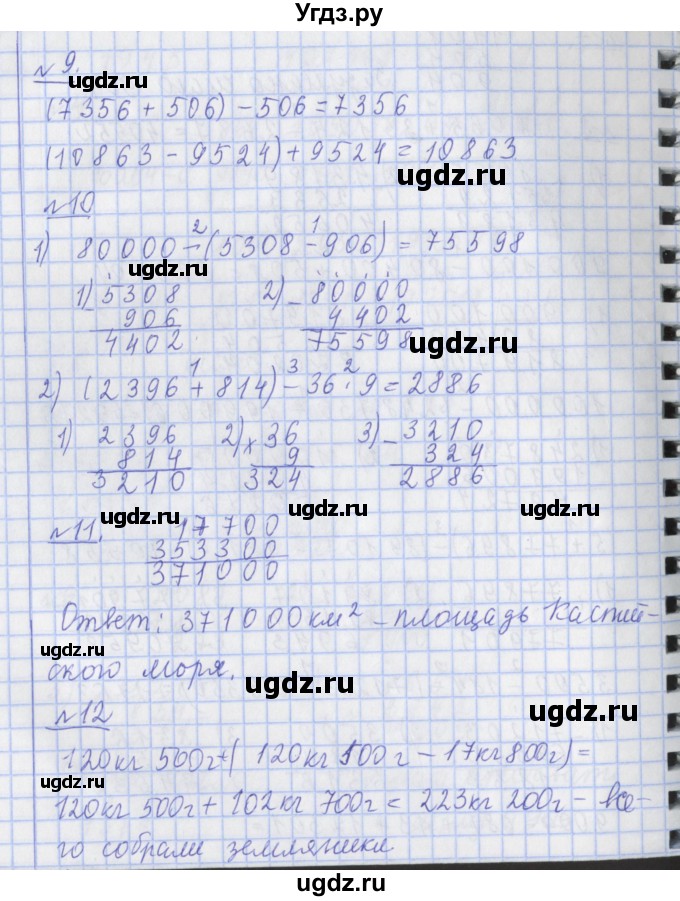 Угдз.ру
№9.
(7356 + 506) - 506 = 7356
(10863 - 9524) + 9524 = 10863
№10
1) 80000 -² (5308 -¹ 906) = 75598
1) - 5308 2) - 80000
906 4402
4402. 75598
2) (2396 +¹ 814) -³ 36 ·² 9 = 2886
1) 2396 2) × 36 3) - 3210
814 9 324
3210 324 2886
№11. 17700
353300
371000
Ответ: 371000 км² - площадь Каспий-
ского моря.
№12
120кг 500г + (120кг 500г - 17кг 800г) =
120кг 500г + 102кг 700г = 223кг 200г - все-
го собрали земляники
ugdz.ru
ugdz.ru
ugdz.ru
ugdz.ru
ugdz.ru
ugdz.ru
ugdz.ru
ugdz.ru
ugdz.ru
ugdz.ru
ugdz.ru
ugdz.ru
ugdz.ru